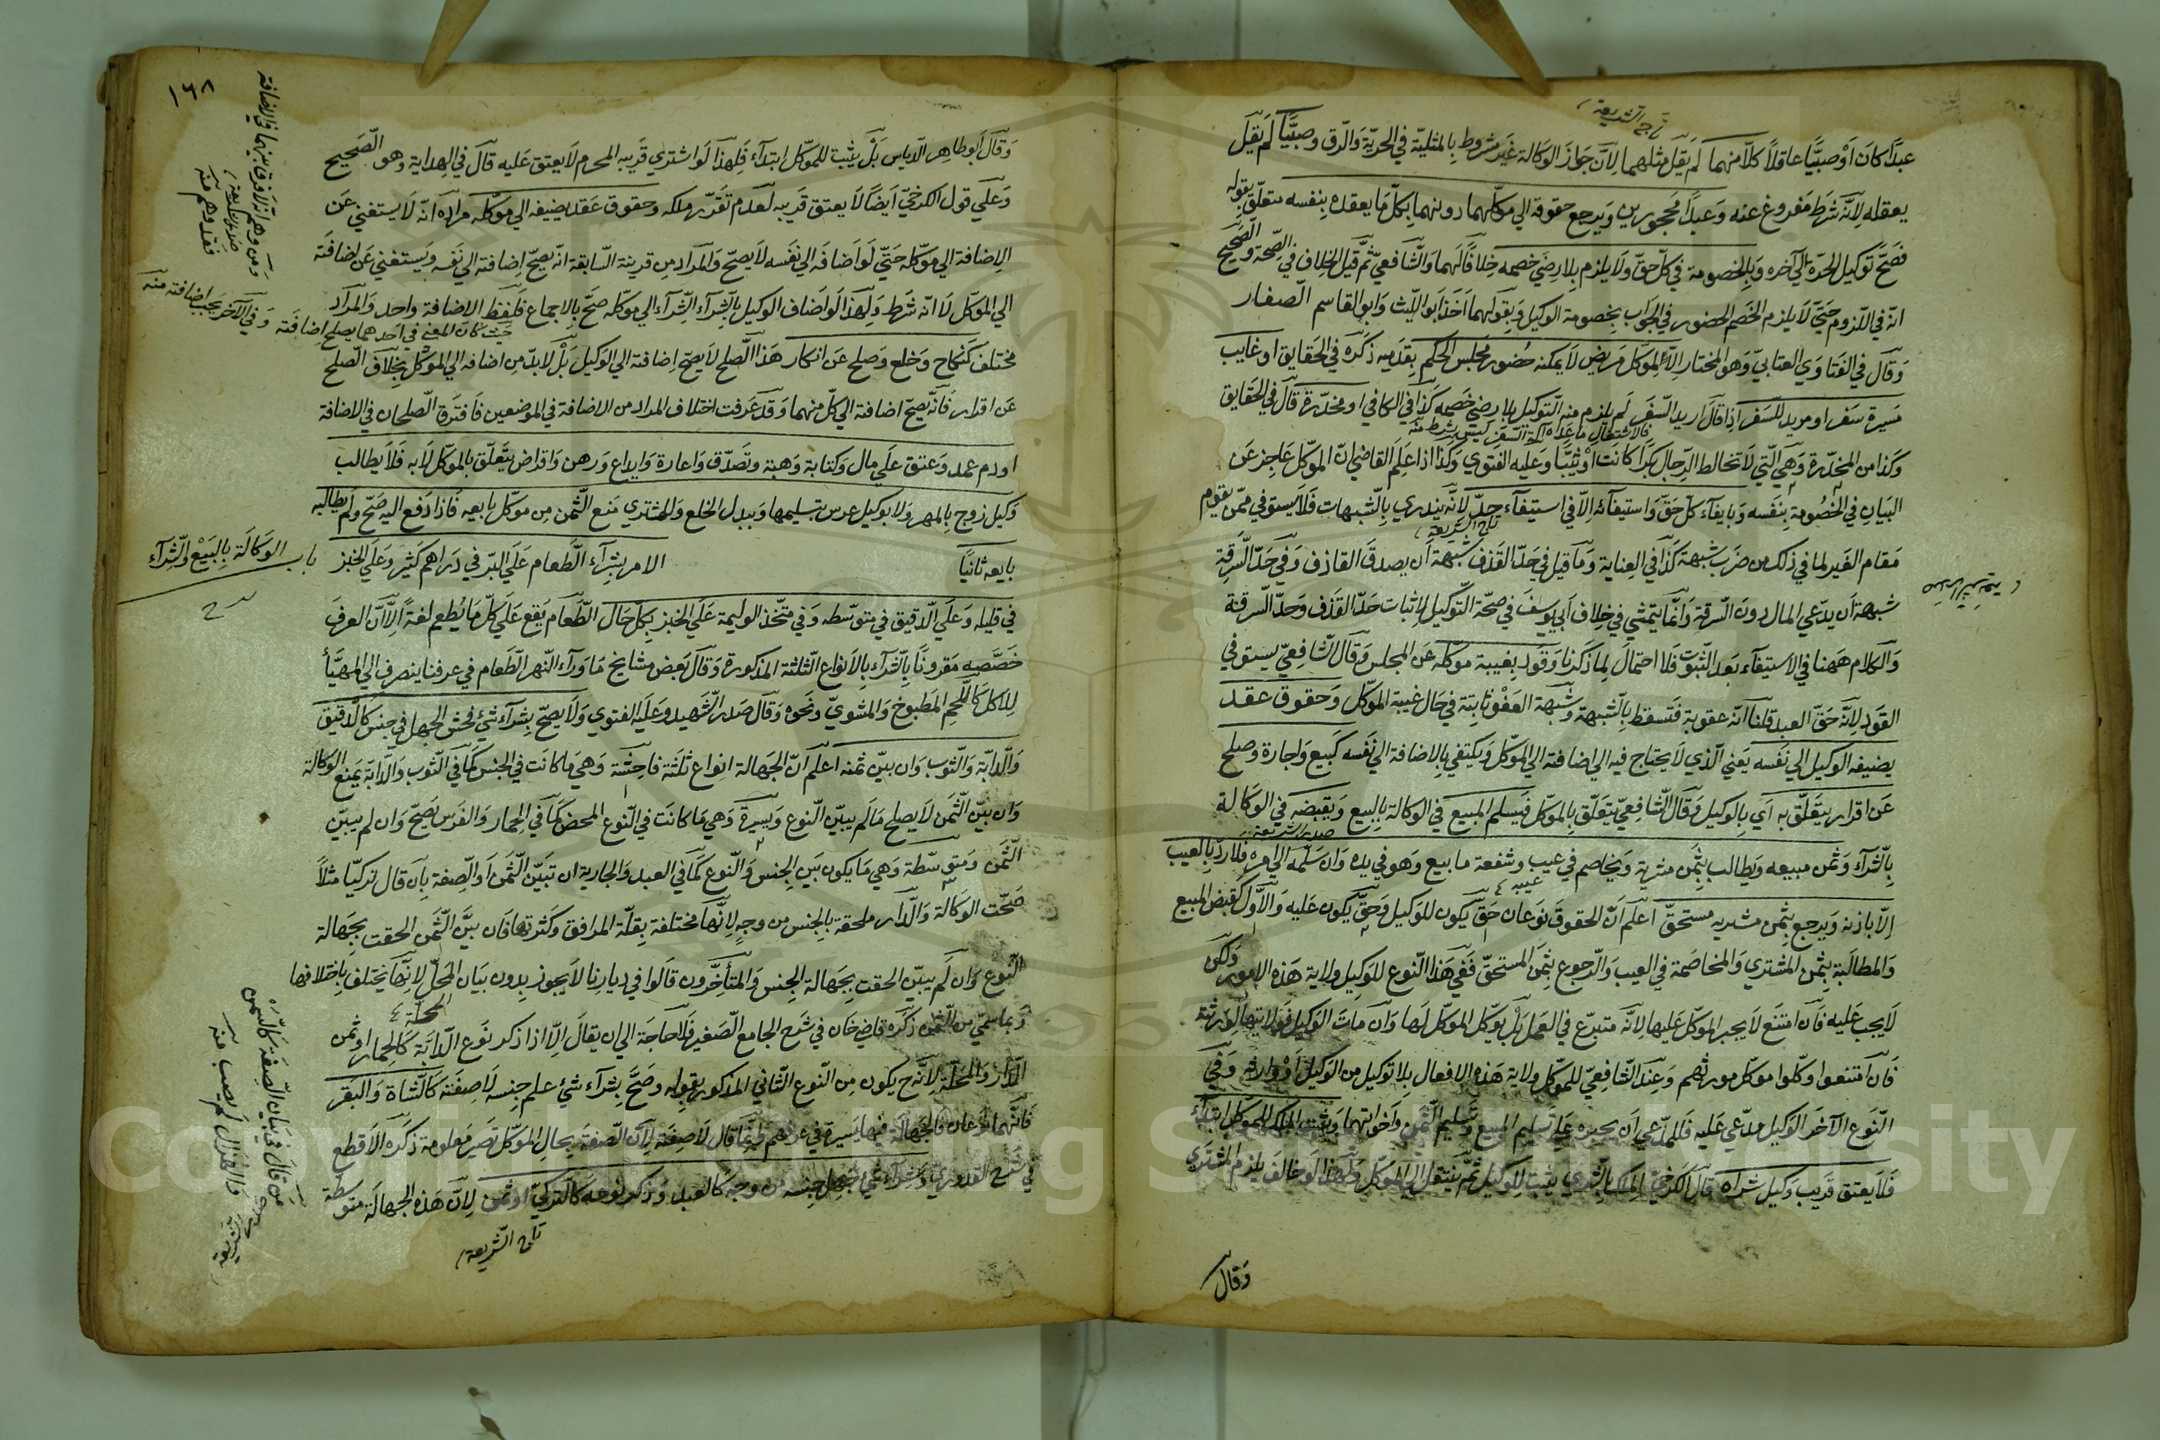 تاج الشريعة
عبدا كان او صبيا عاقلا كلا منهما لم يقل مثلهما لان جواز الوكالة غير مشروط بالمثلية في الحرية والرق وصبيا لم يقل
يعقله لانه شرط مفروغ عنه وعبدا محجورين ويرجع حقوقه الي موكلهما دونهما بكل ما يعقده بنفسه متعلق بقوله
فصح توكيل الحر الي آخره وبالخصومة في كل حق ولا يلزم بلا رضي خصمه خلافا لهما والشافعي ثم قيل الخلاف في الصحة والصحيح
انه في اللزوم حتي لا يلزم الخصم الحضور في الجواب بخصومة الوكيل وبقولهما اخذ ابو الليث وابو القاسم الصفار
وقال في الفتاوي العتابي وهو المختار الا لموكل مريض لا يمكنه حضور مجلس الحكم بقدميه ذكره في الحقايق او غايب
مسيرة سفر او مريد للسفر اذا قال اريد السفر لم يلزم منه التوكيل بلا رضي خصمه كذا في الكافي او مخدرة قال في الحقايق
وكذا من المخدرة وهي التي لا تخالط الرجال بكرا كانت او ثيبا وعليه الفتوي وكذا اذا علم القاضي ان الموكل عاجز عن
البيان في الخصومة بنفسه وبايفاء كل حق واستيفائه الا في استيفاء حد لانه يندرئ بالشبهات فلا يستوفي ممن يقوم
تاج الشريعة
مقام الغير لما في ذلك من ضرب شبهة كذا في العناية وما قيل في حد القذف شبهة ان يصدق القاذف وفي حد السرقة
صدر الشريعة
شبهة ان يدعي المال دون السرقة وانما يتمشي في خلاف ابي يوسف في صحة التوكيل لاثبات حد القذف وحد السرقة
والكلام ههنا في الاستيفاء بعد الثبوت فلا احتمال لما ذكرنا وقود بغيبة موكله عن المجلس وقال الشافعي يستوفي
القود لانه حق العبد قلنا انه عقوبة فتسقط بالشبهة وشبهة العفو ثابتة في حال غيبة الموكل وحقوق عقد
يضيفه الوكيل الي نفسه يعني الذي لا يحتاج فيه الي اضافته الي الموكل ويكتفي بالاضافة الي نفسه كبيع واجارة وصلح
عن اقرار يتعلق به اي بالوكيل وقال الشافعي يتعلق بالموكل فيسلم المبيع في الوكالة بالبيع ويقبضه في الوكالة
صدر الشريعة
بالشراء وثمن مبيعه ويطالب بثمن مشريه ويخاصم في عيب وشفعة ما بيع وهو في يده وان سلمه الي امره فلا رد بالعيب
الا باذنه ويرجع بثمن مشريه مستحق اعلم ان الحقوق نوعان حق يكون للوكيل وحق يكون عليه والاول كقبض المبيع
والمطالبة بثمن المشتري والمخاصمة في العيب والرجوع بثمن المستحق ففي هذا النوع للوكيل ولاية هذه الامور ولكن
لا يجب عليه فان امتنع لا يجبر الموكل عليها لانه متبرع في العمل بل يوكل الموكل لها وان مات الوكيل فولايتها لورثته
فان امتنعوا وكلوا موكل مورثهم وعند الشافعي للموكل ولاية هذه الافعال بلا توكيل من الوكيل او وارثه وفي
النوع الآخر الوكيل مدعي عليه فللمدعي ان يجبره علي تسليم المبيع وتسليم الثمن واخواتهما ويثبت الملك للموكل ابتداء
فلا يعتق قريب وكيل شراه قال الكرخي الملك بالشري يثبت للوكيل ثم ينتقل الي الموكل ولهذا لو خالف يلزم المشتري
وقال
١٦٨
وقال ابو طاهر الدباس بل يثبت للموكل ابتداء فلهذا لو اشتري قريبه المحرم لا يعتق عليه قال في الهداية وهو الصحيح
وعلي قول الكرخي ايضا لا يعتق قريبه لعدم تقرر ملكه وحقوق عقد يضيفه الي موكله مراده انه لا يستغني عن
الاضافة الي موكله حتي لو اضافه الي نفسه لا يصح والمراد من قرينة السابقة انه يصح اضافته الي نفسه ويستغني عن اضافته
الي الموكل لا انه شرط ولهذا لو اضاف الوكيل بالشراء الشراء الي موكله صح بالاجماع فلفظ الاضافة واحد والمراد
حيث كان المعني في احدهما يصلح اضافته وفي الآخر يجب اضافته منه
مختلف كنكاح وخلع وصلح عن انكار هذا الصلح لا يصح اضافته الي الوكيل بل لابد من اضافه الي الموكل بخلاف الصلح
عن اقرار فانه يصح اضافته الي كل منهما وقد عرفت اختلاف المراد من الاضافة في الموضعين فافترق الصلحان في الاضافة
او دم عمد وعتق علي مال وكتابة وهبة وتصدق واعارة وايداع ورهن واقراض يتعلق بالموكل لا به فلا يطالب
وكيل زوج بالمهر ولا وكيل عرس بتسليمها وببدل الخلع والمشتري منع الثمن من موكل بايعه فاذا دفع اليه صح ولم يطالبه
بايعه ثانيا
باب الوكالة بالبيع والشراء
الامر بشراء الطعام علي البر في دراهم كثير وعلي الخبز
في قليله وعلي الدقيق في متوسطه وفي متخذ الوليمة علي الخبز بكل حال الطعام يقع علي كل ما يطعم لغة الا ان العرف
خصصه مقرونا بالشراء بالانواع الثلثة المذكورة وقال بعض مشايخ ما وراء النهر الطعام في عرفنا ينصرف الي المهيأ
للاكل كاللحم المطبوخ والمشوي ونحوه وقال صدر الشهيد وعليه الفتوي ولا يصح بشراء شئ فحش الجهل في جنسه كالدقيق
والدابة والثوب وان بين ثمنه اعلم ان الجهالة انواع ثلثة فاحشة وهي ما كانت في الجنس كما في الثوب والدابة يمنع الوكالة
وان بين الثمن لا يصلح ما لم يبين النوع ويسيرة وهي ما كانت في النوع المحض كما في الحمار والفرس يصح وان لم يبين
الثمن ومتوسطة وهي ما يكون بين الجنس والنوع كما في العبد والجارية ان تبين الثمن او الصفة بان قال تركيا مثلا
صحت الوكالة والدار ملحقة بالجنس من وجه لانها مختلفة بقلة المرافق وكثرتها فان بين الثمن الحقت بجهالة
النوع وان لم يبين الحقت بجهالة الجنس والمتأخرون قالوا في ديارنا لا يجوز بدون بيان المحل لانها يختلف باختلافها
وبما سمي من الثمن ذكره قاضي خان في شرح الجامع الصغير فلا حاجة الي ان يقال الا اذا ذكر نوع الدابة كالحمار او ثمن
الدار والمحلة لانه ح يكون من النوع الثاني المذكور بقوله وصح بشراء شئ علم جنسه لا صفته كالشاة والبقر
فانهما نوعان فالجهالة فيها يسيرة في عرفهم وانما قال لا صفته لان الصفة بحال الموكل تصير معلومة ذكره الاقطع
في شرح القدوري وشراء شئ جهل جنسه من وجه كالعبد وذكر نوعه كالتركي او ثمن لان هذه الجهالة متوسطة
تاج الشريعة
ومن وهم انه لا فرق بينهما في الاضافة
صدر الشريعة
فقد وهم منه
من قال في بيان الصفة كالسمن
والهزال لم يصب منه
صدر الشريعة
Copyright © King Saud University